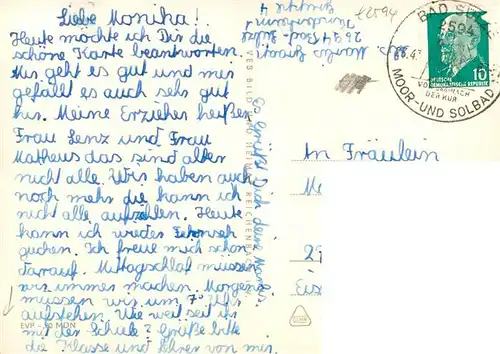 Liebe Monika!
Heute möchte ich Dir die
schöne Karte beantworten.
Mir geht es gut und mir
gefällt es auch sehr gut
hir. Meine Erzieher heißen
Frau Lenz und Frau
Matheus das sind aller
nicht alle. Wir haben auch
noch mehr die kann ich
nicht alle aufzählen. Heute
kann ich wieder Fehnseh
guchen. Ich freue mich schon
darauf. Mittagschlaf müssen
wir immer machen. Morgens
müssen wir um 7⁰⁰ Uhr
aufstehen. Wie weit seit ihr
mit der Schule? Grüße bitte
die Klasse und Lehrer von mir.
Es grüßt Dich deine Manos.
2594 Bad Sülze
Kinderkurheim
Gruppe 4
2594
BAD SÜLZE
2594
MOOR- UND SOLBAD
NACH
DER KUR
10
DEUTSCHE
DEMOKRATISCHE REPUBLIK
VEB BILD UND HEIMAT REICHENBACH
An Fräulein
EVP MDN